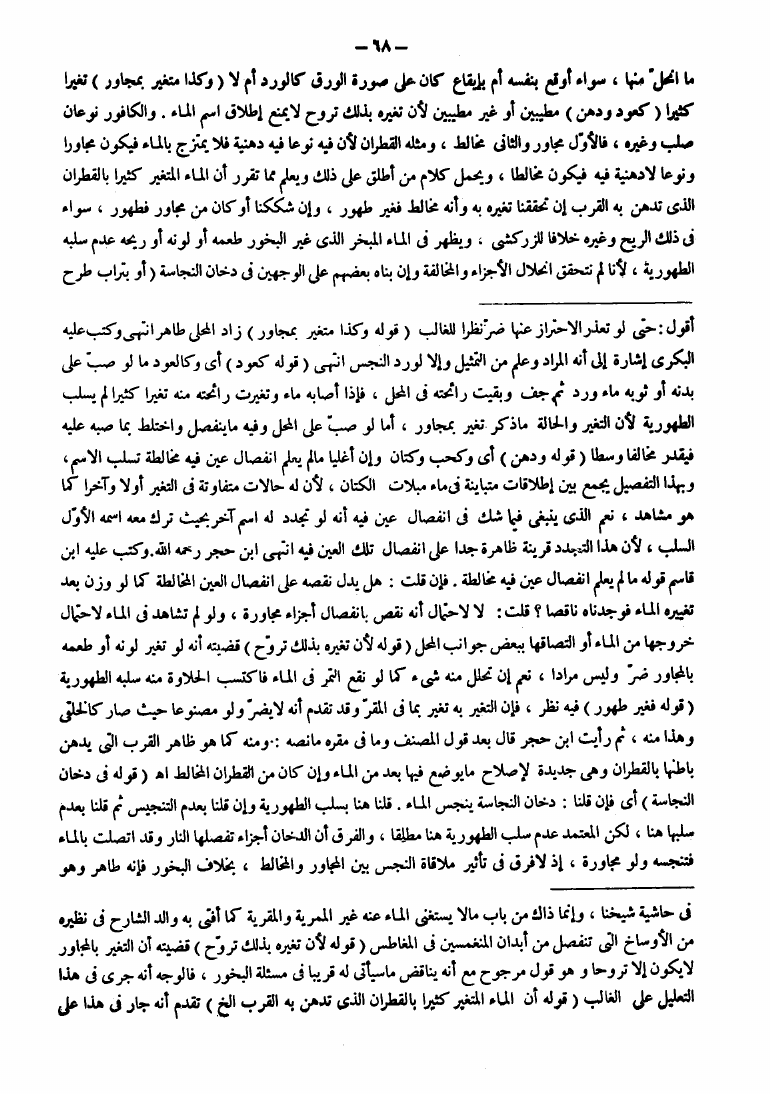 — ٦٨ —
ما انحلّ منها ، سواء أوقع بنفسه أم بإيقاع كان على صورة الورق كالورد أم لا ( وكذا متغير بمجاور ) تغيرا
كثيرا ( كعود ودهن ) مطيبين أو غير مطيبين لأن تغيره بذلك تروح لايمنع إطلاق اسم الماء . والكافور نوعان
صلب وغيره ، فالأوّل مجاور والثانى مخالط ، ومثله القطران لأن فيه نوعا فيه دهنية فلا يمتزج بالماء فيكون مجاورا
ونوعا لادهنية فيه فيكون مخالطا ، ويحمل كلام من أطلق على ذلك ويعلم مما تقرر أن الماء المتغير كثيرا بالقطران
الذى تدهن به القرب إن تحققنا تغيره به وأنه مخالط فغير طهور ، وإن شككنا أو كان من مجاور فطهور ، سواء
فى ذلك الريح وغيره خلافا للزركشى ، ويظهر فى الماء المبخر الذى غير البخور طعمه أو لونه أو ريحه عدم سلبه
الطهورية ، لأنا لم نتحقق انحلال الأجزاء والمخالفة وإن بناه بعضهم على الوجهين فى دخان النجاسة ( أو بتراب طرح
أقول : حتى لو تعذر الاحتراز عنها ضرّ نظرا للغالب ( قوله وكذا متغير بمجاور ) زاد المحلى طاهر انتهى وكتب عليه
البكرى إشارة إلى أنه المراد وعلم من التمثيل وإلا لورد النجس انتهى ( قوله كعود ) أى وكالعود ما لو صبّ على
بدنه أو ثوبه ماء ورد ثم جف وبقيت رائحته فى المحل ، فإذا أصابه ماء وتغيرت رائحته منه تغيرا كثيرا لم يسلب
الطهورية لأن التغير والحالة ماذكر تغير بمجاور ، أما لو صبّ على المحل وفيه ماينفصل واختلط بما صبه عليه
فيقدر مخالفا وسطا ( قوله ودهن ) أى وكحب وكتان وإن أغليا مالم يعلم انفصال عين فيه مخالطة تسلب الاسم ،
وبهذا التفصيل يجمع بين إطلاقات متباينة فى ماء مبلات الكتان ، لأن له حالات متفاوتة فى التغير أولا وآخرا كما
هو مشاهد ، نعم الذى ينبغى فيما شك فى انفصال عين فيه أنه لو تجدد له اسم آخر بحيث ترك معه اسمه الأوّل
السلب ، لأن هذا التجدد قرينة ظاهرة جدا على انفصال تلك العين فيه انتهى ابن حجر رحمه الله . وكتب عليه ابن
قاسم قوله مالم يعلم انفصال عين فيه مخالطة . فإن قلت : هل يدل نقصه على انفصال العين المخالطة كما لو وزن بعد
تغييره الماء فوجدناه ناقصا ؟ قلت : لا لاحتمال أنه نقص بانفصال أجزاء مجاورة ، ولو لم تشاهد فى الماء لاحتمال
خروجها من الماء أو التصاقها ببعض جوانب المحل ( قوله لأن تغيره بذلك تروّح ) قضيته أنه لو تغير لونه أو طعمه
بالمجاور ضرّ وليس مرادا ، نعم إن تحلل منه شىء كما لو نقع التمر فى الماء فاكتسب الحلاوة منه سلبه الطهورية
( قوله فغير طهور ) فيه نظر ، فإن التغير به تغير بما فى المقرّ وقد تقدم أنه لايضرّ ولو مصنوعا حيث صار كالخلقى
وهذا منه ، ثم رأيت ابن حجر قال بعد قول المصنف وما فى مقره مانصه : ومنه كما هو ظاهر القرب التى يدهن
باطنها بالقطران وهى جديدة لإصلاح مايوضع فيها بعد من الماء وإن كان من القطران المخالط اه ( قوله فى دخان
النجاسة ) أى فإن قلنا : دخان النجاسة ينجس الماء . قلنا هنا بسلب الطهورية وإن قلنا بعدم التنجيس ثم قلنا بعدم
سلبها هنا ، لكن المعتمد عدم سلب الطهورية هنا مطلقا ، والفرق أن الدخان أجزاء تفصلها النار وقد اتصلت بالماء
فتنجسه ولو مجاورة ، إذ لافرق فى تأثير ملاقاة النجس بين المجاور والمخالط ، بخلاف البخور فإنه طاهر وهو
فى حاشية شيخنا ، وإنما ذاك من باب مالا يستغنى الماء عنه غير الممرية والمقرية كما أفتى به والد الشارح فى نظيره
من الأوساخ التى تنفصل من أبدان المنغمسين فى المغاطس ( قوله لأن تغيره بذلك تروّح ) قضيته أن التغير بالمجاور
لايكون إلا تروحا و هو قول مرجوح مع أنه يناقض ماسيأتى له قريبا فى مسئلة البخور ، فالوجه أنه جرى فى هذا
التعليل على الغالب ( قوله أن الماء المتغير كثيرا بالقطران الذى تدهن به القرب الخ ) تقدم أنه جار فى هذا على